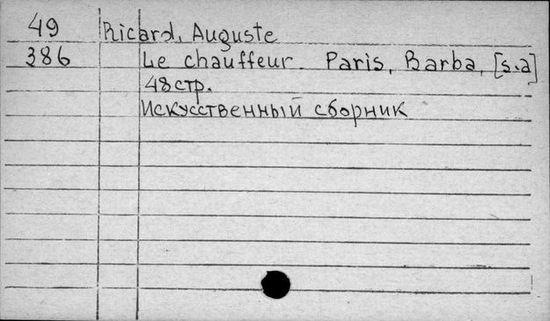 49 Ricard, Auguste
386 Le chauffeur. Paris, Barba, [s.a]
48 стр.
Искусственный сборник